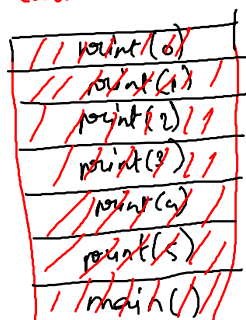 print(0)
print(1)
print(2)
print(3)
print(4)
print(5)
main()